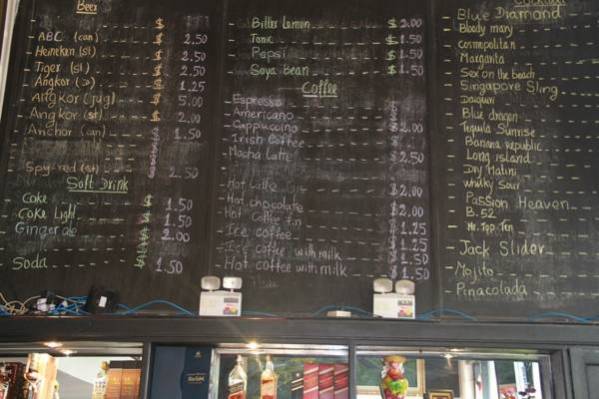 Beer
ABC (can) $ 2.50
Heineken (sl) $ 2.50
Tiger (sl) $ 2.50
Angkor $ 1.25
Angkor (jug) $ 5.00
Angkor (st) $ 2.00
Anchor (can) 1.50
Spy red 2.50
Soft Drink
Coke $ 1.50
Coke Light $ 1.50
Ginger ale $ 2.00
Soda $ 1.50
Bitter Lemon $ 2.00
Tonic $ 1.50
Pepsi $ 1.50
Soya Bean $ 1.50
Coffee
Espresso
Americano
Cappuccino $ 2.00
Irish Coffee
Mocha Latte $ 2.50
Hot Latte
Hot chocolate $ 2.00
Hot Coffee
Ice coffee $ 1.25
Ice coffee with milk $ 1.25
Hot coffee with milk $ 1.50
Cocktail
Blue Diamond
Bloody mary
Cosmopolitan
Margarita
Sex on the beach
Singapore Sling
Daiquiri
Blue dragon
Tequila Sunrise
Banana republic
Long island
Dry Matini
whisky Sour
Passion Heaven
B.52
Mr. Top Ten
Jack Slider
Mojito
Pinacolada